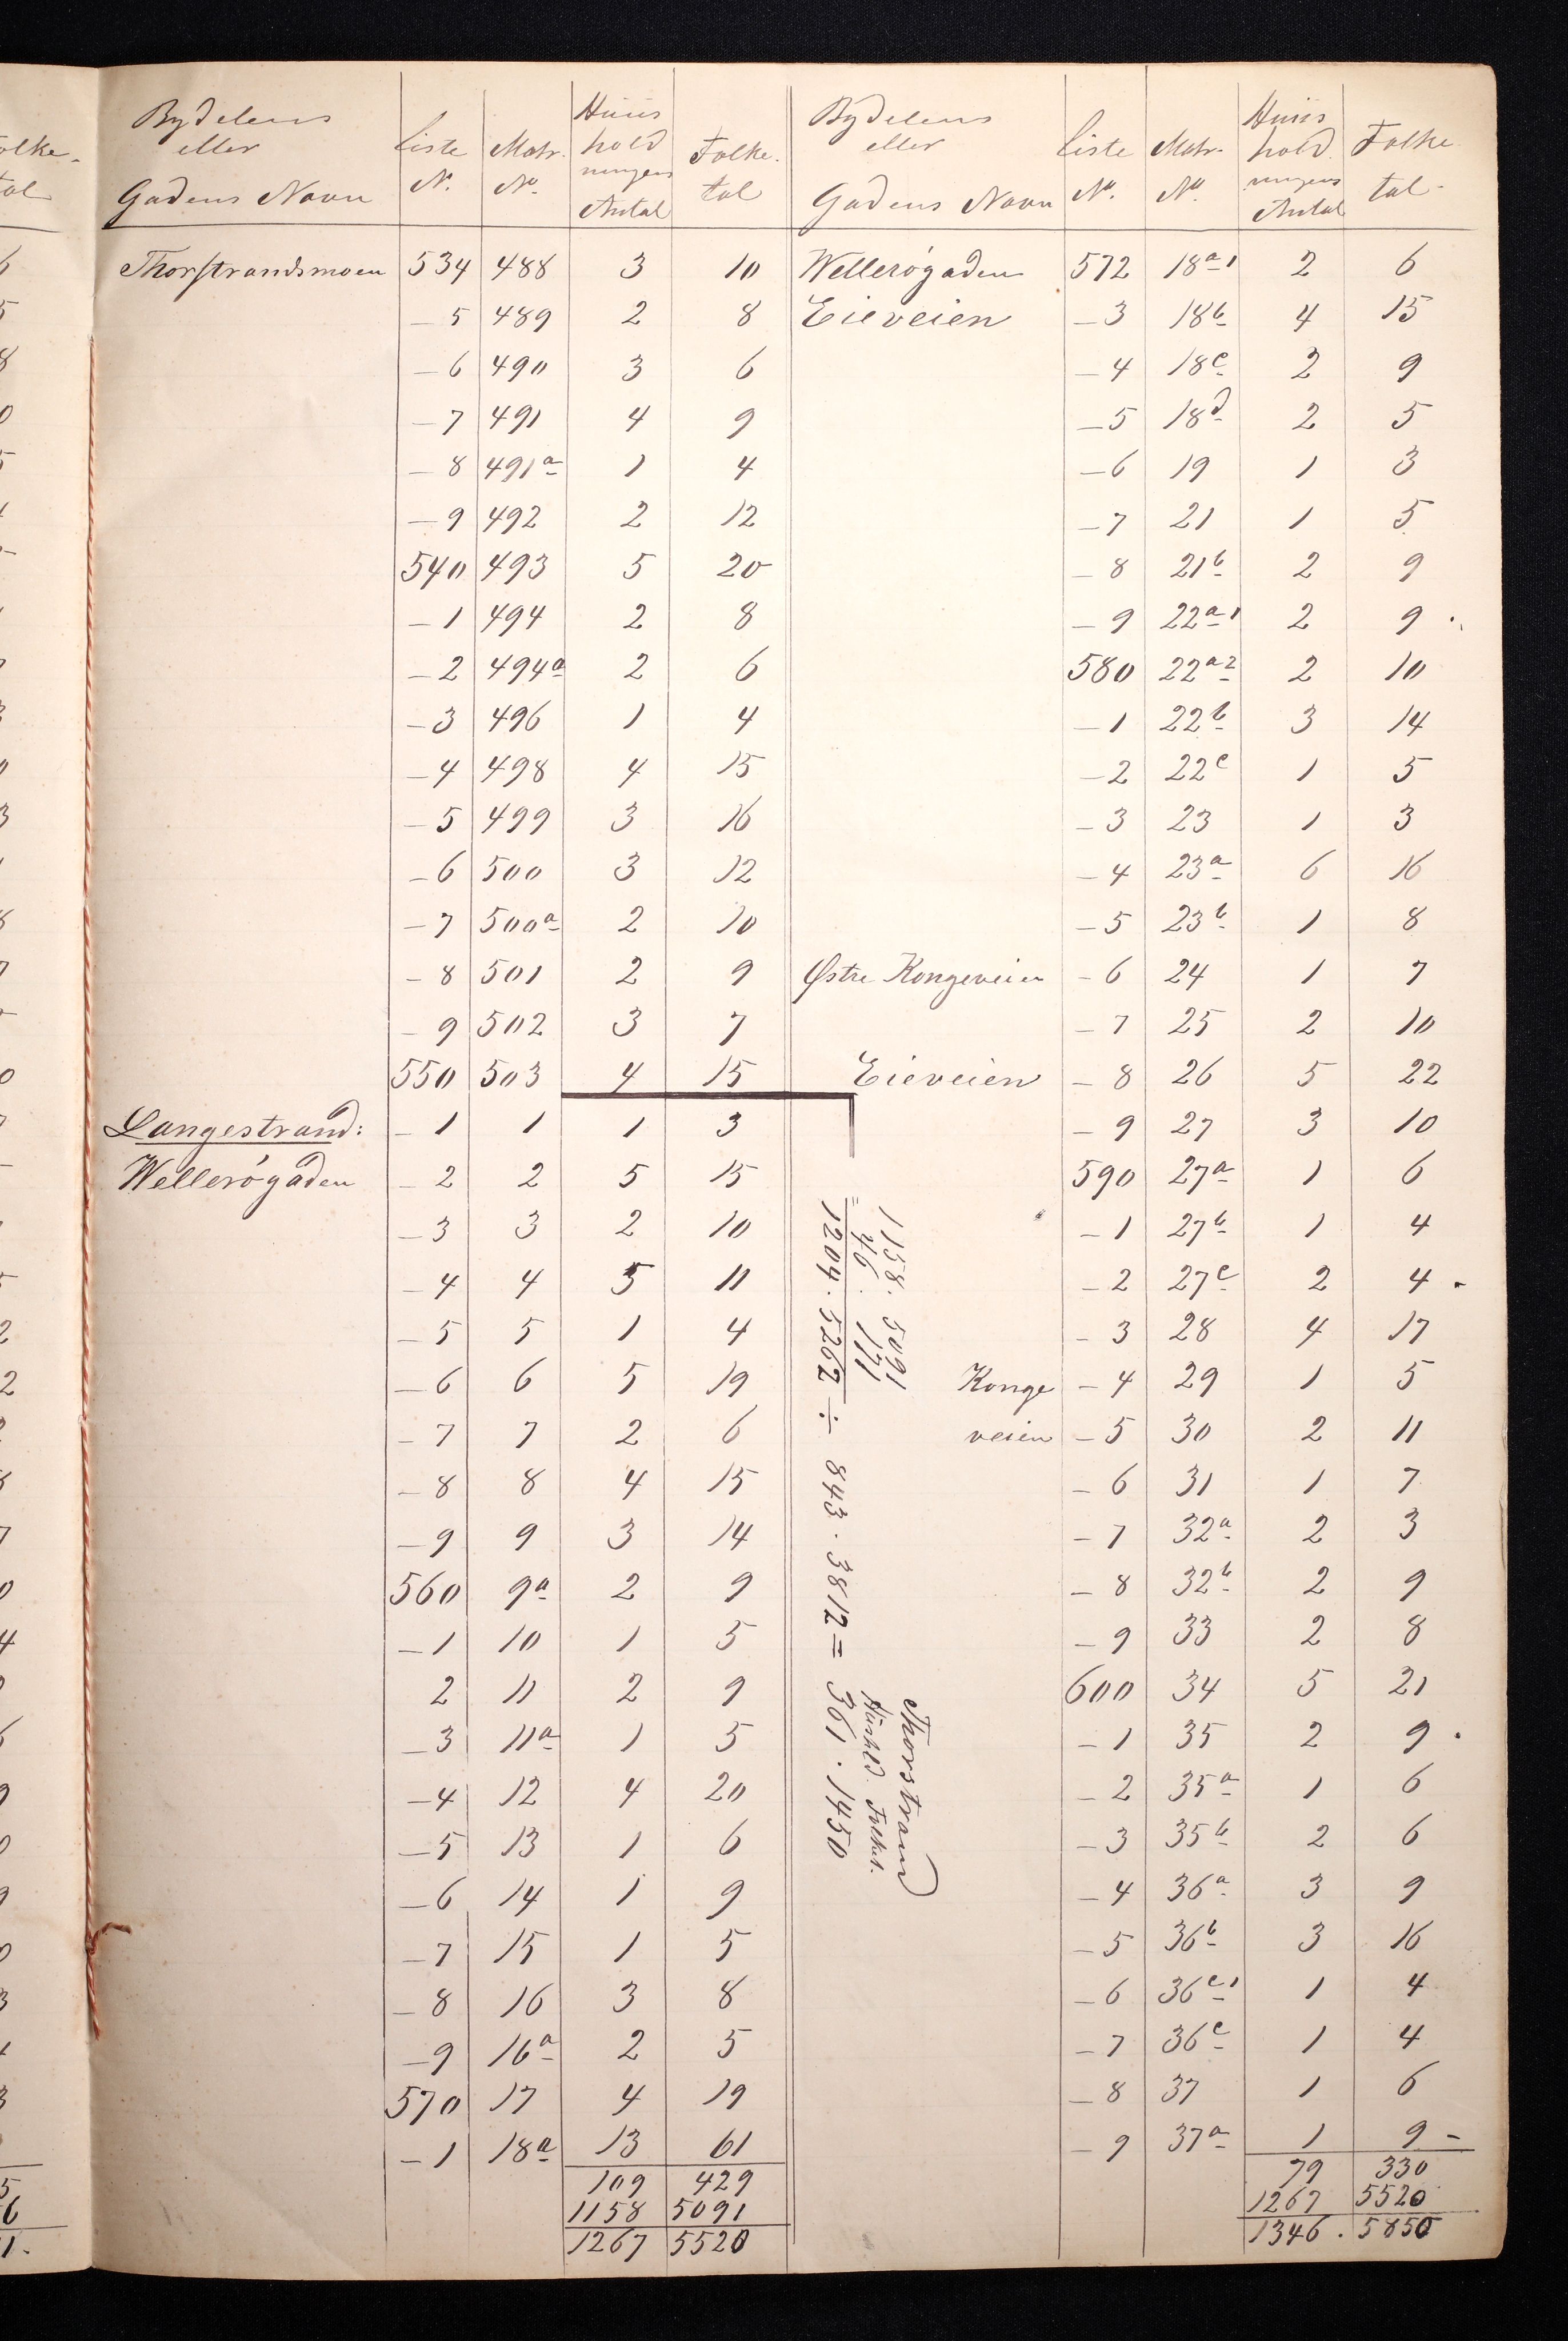 Bydelens eller Gadens Navn | Liste No. | Matr. No. | Huus hold ningers Antal | Folke tal
Thorstrandsmoen 534 488 3 10
– 5 489 2 8
– 6 490 3 6
– 7 491 4 9
– 8 491a 1 4
– 9 492 2 12
540 493 5 20
– 1 494 2 8
– 2 494a 2 6
– 3 496 1 4
– 4 498 4 15
– 5 499 3 16
– 6 500 3 12
– 7 500a 2 10
– 8 501 2 9
– 9 502 3 7
550 503 4 15
Langestrand: – 1 1 1 3
Wellerøgaden – 2 2 5 15
– 3 3 2 10
– 4 4 5 11
– 5 5 1 4
– 6 6 5 19
– 7 7 2 6
– 8 8 4 15
– 9 9 3 14
560 9a 2 9
– 1 10 1 5
2 11 2 9
– 3 11a 1 5
– 4 12 4 20
– 5 13 1 6
– 6 14 1 9
– 7 15 1 5
– 8 16 3 8
– 9 16a 2 5
570 17 4 19
– 1 18a 13 61
109 429
1158 5091
1267 5520
Bydelens eller Gadens Navn | Liste No. | Matr. No. | Huus hold ningers Antal | Folke tal
Wellerøgaden 572 18a1 2 6
Eieveien – 3 18b 4 15
– 4 18c 2 9
– 5 18d 2 5
– 6 19 1 3
– 7 21 1 5
– 8 21b 2 9
– 9 22a1 2 9
580 22a2 2 10
– 1 22b 3 14
– 2 22c 1 5
– 3 23 1 3
– 4 23a 6 16
– 5 23b 1 8
Østre Kongeveien – 6 24 1 7
– 7 25 2 10
Eieveien – 8 26 5 22
– 9 27 3 10
590 27a 1 6
– 1 27b 1 4
– 2 27c 2 4
– 3 28 4 17
Konge – 4 29 1 5
veien – 5 30 2 11
– 6 31 1 7
– 7 32a 2 3
– 8 32b 2 9
– 9 33 2 8
600 34 5 21
– 1 35 2 9
– 2 35a 1 6
– 3 35b 2 6
– 4 36a 3 9
– 5 36b 3 16
– 6 36c1 1 4
– 7 36c 1 4
– 8 37 1 6
– 9 37a 1 9
79 330
1267 5520
1346. 5850
Thorstrand
1158. 5091
46. 171
= 1204. 5262 ÷ 843. 3812 = 361. 1450